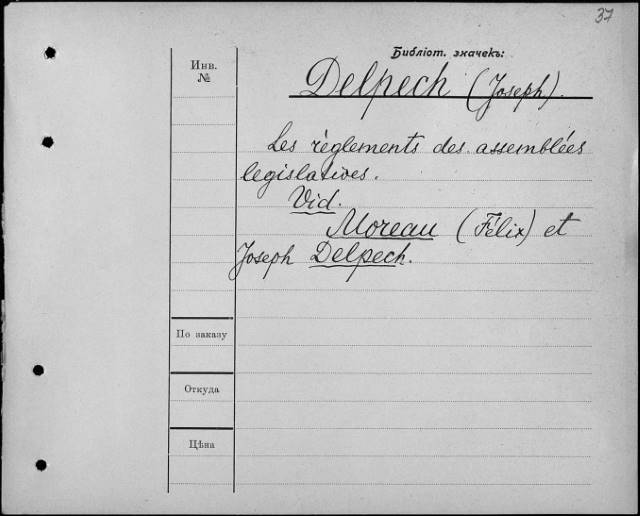 37
Библіот. значекъ:
Инв.
№
Delpech (Joseph).
Les règlements des assemblées
legislatives.
Vid.
Moreau (Félix) et
Joseph Delpech.
По заказу
Откуда
Цѣна